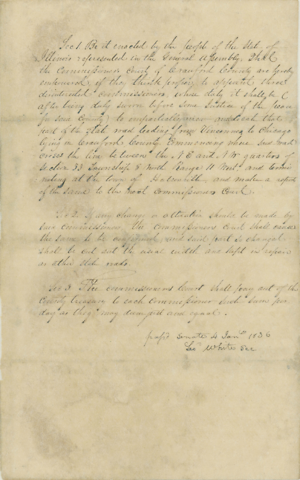 Sec 1 Be it enacted by the people of the State of
Illinois represented in the General Assembly, That
the Commissioners Court of Crawford County are hereby
authorized at the March term to appoint three
disinterested commissioners whose duty it shall be
after being duly sworn before some Justice of the Peace
for said County to impartially view and mark that
part of the State road leading from Vincennes to Chicago
lying in Crawford County, Commencing where said road
cross the line between the N E and N W quarters of
Section 33 Township 8 North Range 11 West and
at the town of and make a report
of the same to the next Commissioners Court.
Sec 2 If any change or alteration should be made by
said commissioners the Commissioners Court shall cause
the same to be opened and said part so changed
shall be cut out the usual width and kept in repair
as other State roads.
Sec 3 The commissioners Court shall pay out of the
County treasury to each Commissioner such sum per
day as they may deem just and equal.
pass'd Senate 4 Jany 1836
Sec